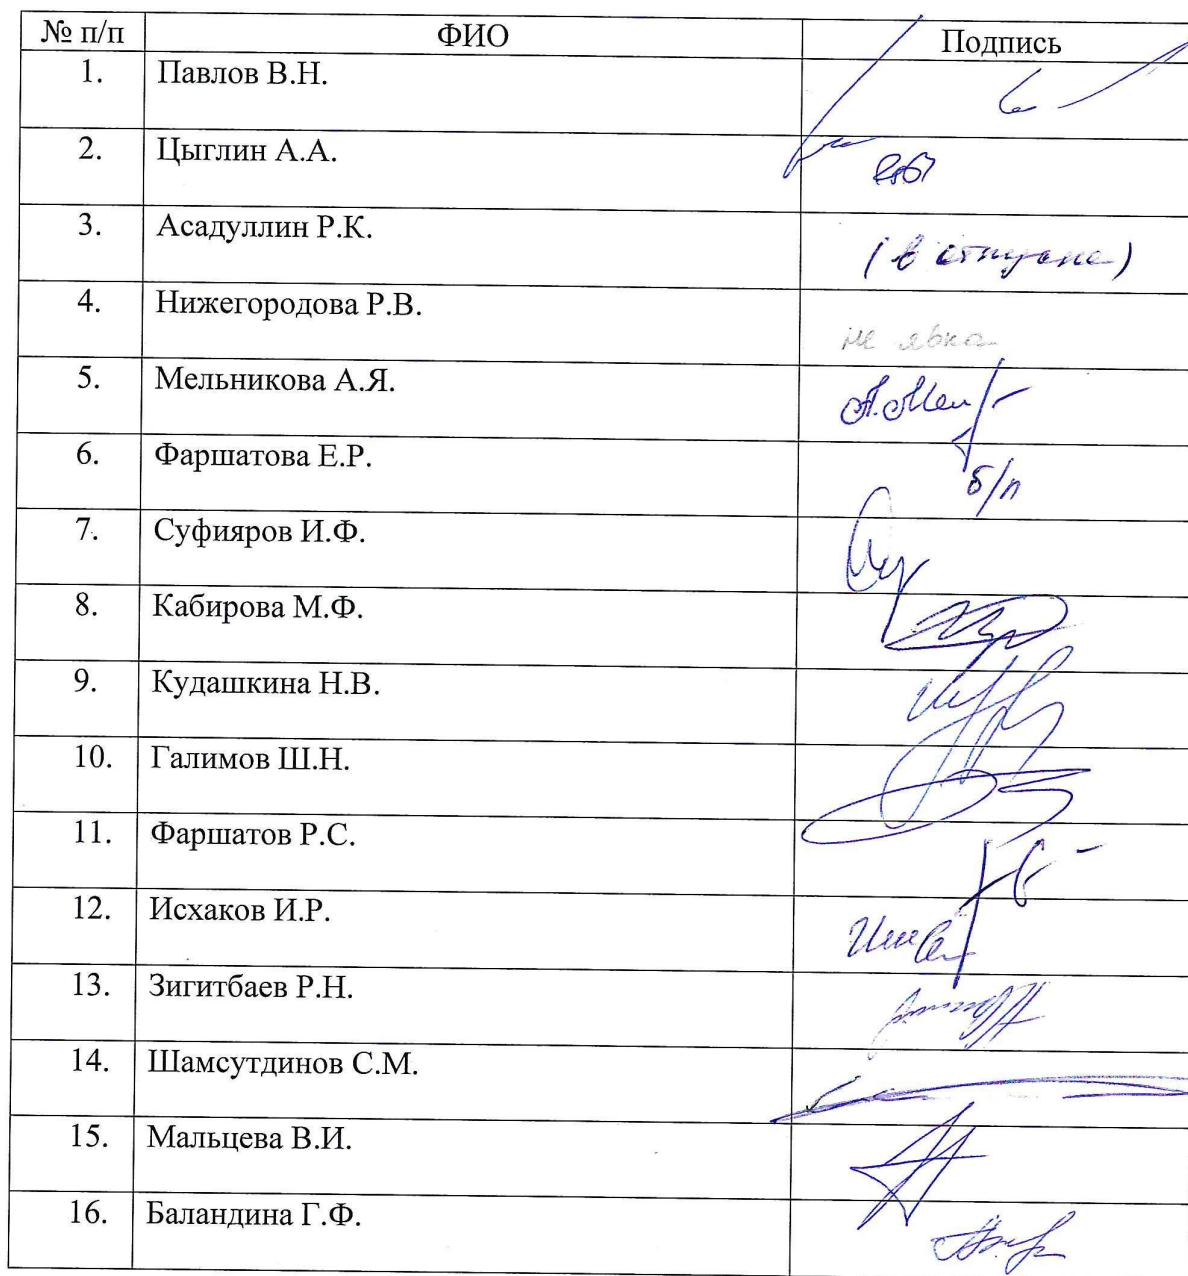 № п/п ФИО Подпись
1. Павлов В.Н.
2. Цыглин А.А.
3. Асадуллин Р.К. (в отпуске)
4. Нижегородова Р.В. не явка
5. Мельникова А.Я. А.Мел
6. Фаршатова Е.Р. б/п
7. Суфияров И.Ф.
8. Кабирова М.Ф.
9. Кудашкина Н.В.
10. Галимов Ш.Н.
11. Фаршатов Р.С.
12. Исхаков И.Р.
13. Зигитбаев Р.Н.
14. Шамсутдинов С.М.
15. Мальцева В.И.
16. Баландина Г.Ф.